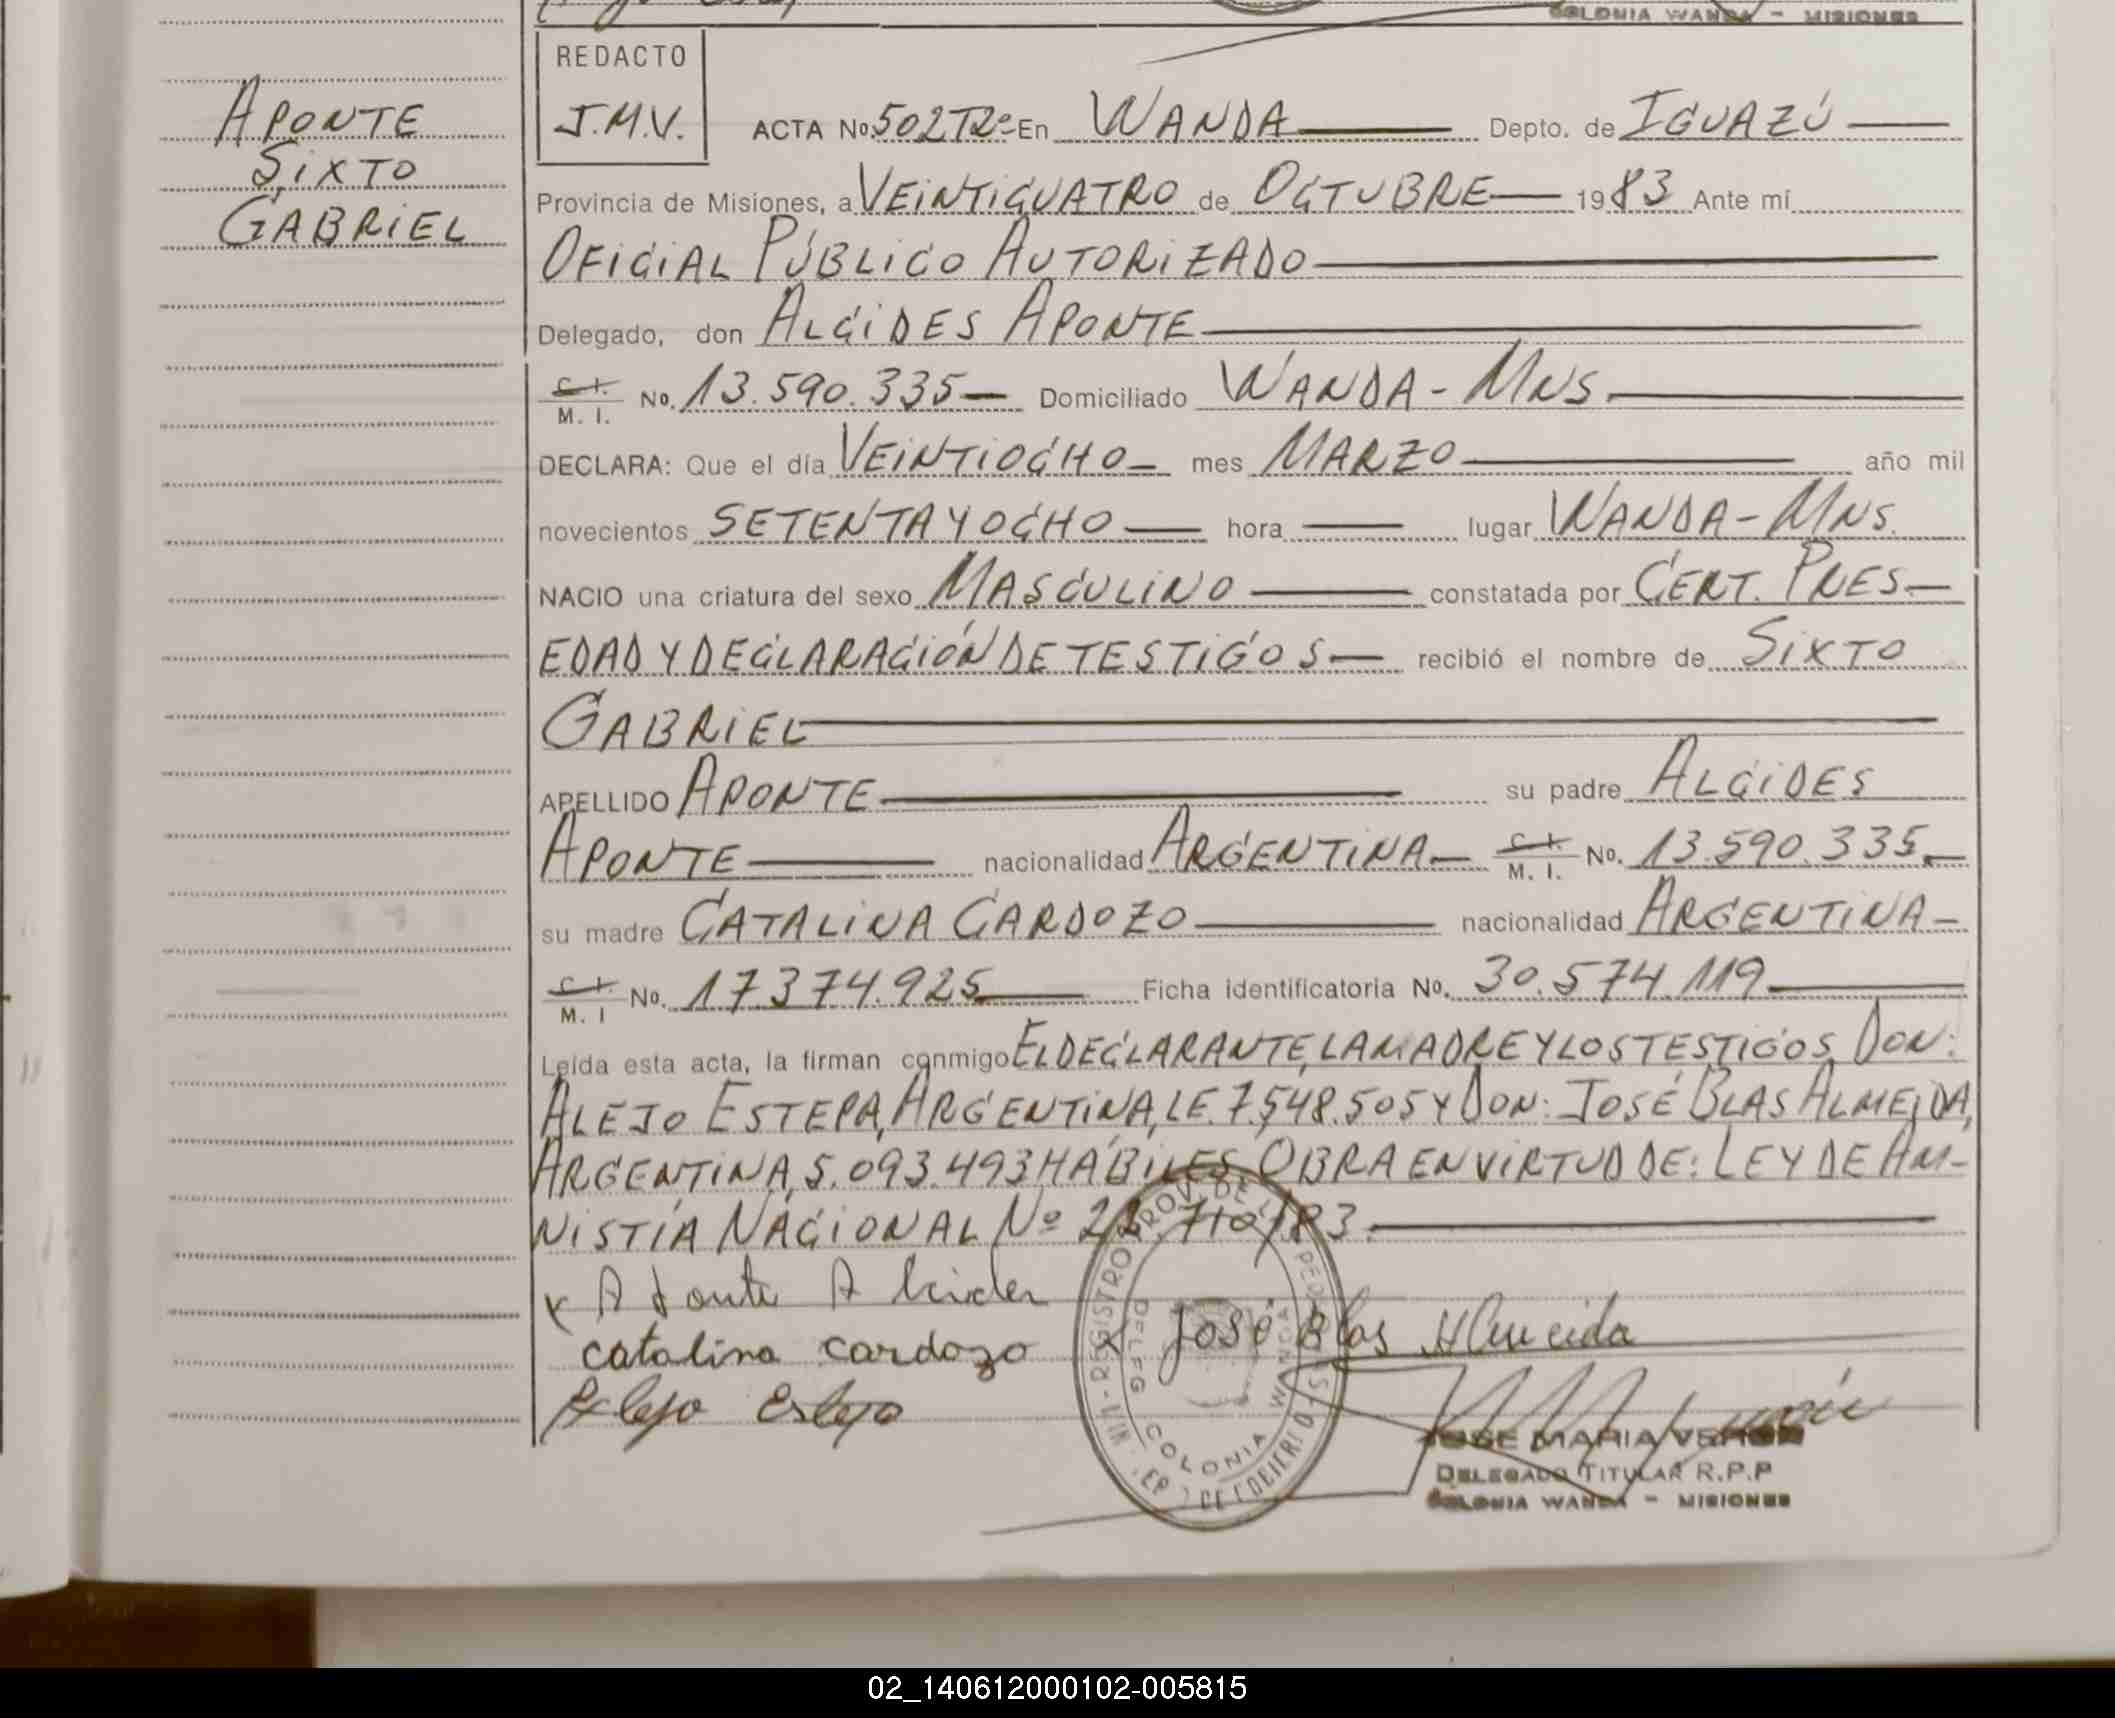 COLONIA WANDA - MISIONES
APONTE
SIXTO
GABRIEL
REDACTO
J.M.V.
ACTA No. 502T2º En WANDA Depto. de IGUAZÚ
Provincia de Misiones, a VEINTICUATRO de OCTUBRE 1983 Ante mí
OFICIAL PÚBLICO AUTORIZADO
Delegado, don ALCIDES APONTE
C. I. M. I. No. 13.590.335 Domiciliado WANDA - MNS
DECLARA: Que el día VEINTIOCHO mes MARZO año mil
novecientos SETENTA Y OCHO hora lugar WANDA - MNS.
NACIO una criatura del sexo MASCULINO constatada por CERT. PRES.
EDAD Y DECLARACIÓN DE TESTIGOS recibió el nombre de SIXTO
GABRIEL
APELLIDO APONTE su padre ALCIDES
APONTE nacionalidad ARGENTINA C. I. M. I. No. 13.590.335
su madre CATALINA CARDOZO nacionalidad ARGENTINA
C. I. M. I No. 17374.925 Ficha identificatoria No. 30.574.119
Leída esta acta, la firman conmigo EL DECLARANTE, LA MADRE Y LOS TESTIGOS DON:
ALEJO ESTEPA, ARGENTINA, L.E. 7.548.505 Y DON: JOSÉ BLAS ALMEIDA,
ARGENTINA, 5.093.493 HÁBILES. OBRA EN VIRTUD DE: LEY DE AM-
NISTÍA NACIONAL Nº 22.710/83.
x Aponte Alcides
catalina cardozo x José Blas Almeida
Alejo Estepa
COLONIA WANDA
JOSE MARIA VERON
DELEGADO TITULAR R.P.P
COLONIA WANDA - MISIONES
02_140612000102-005815